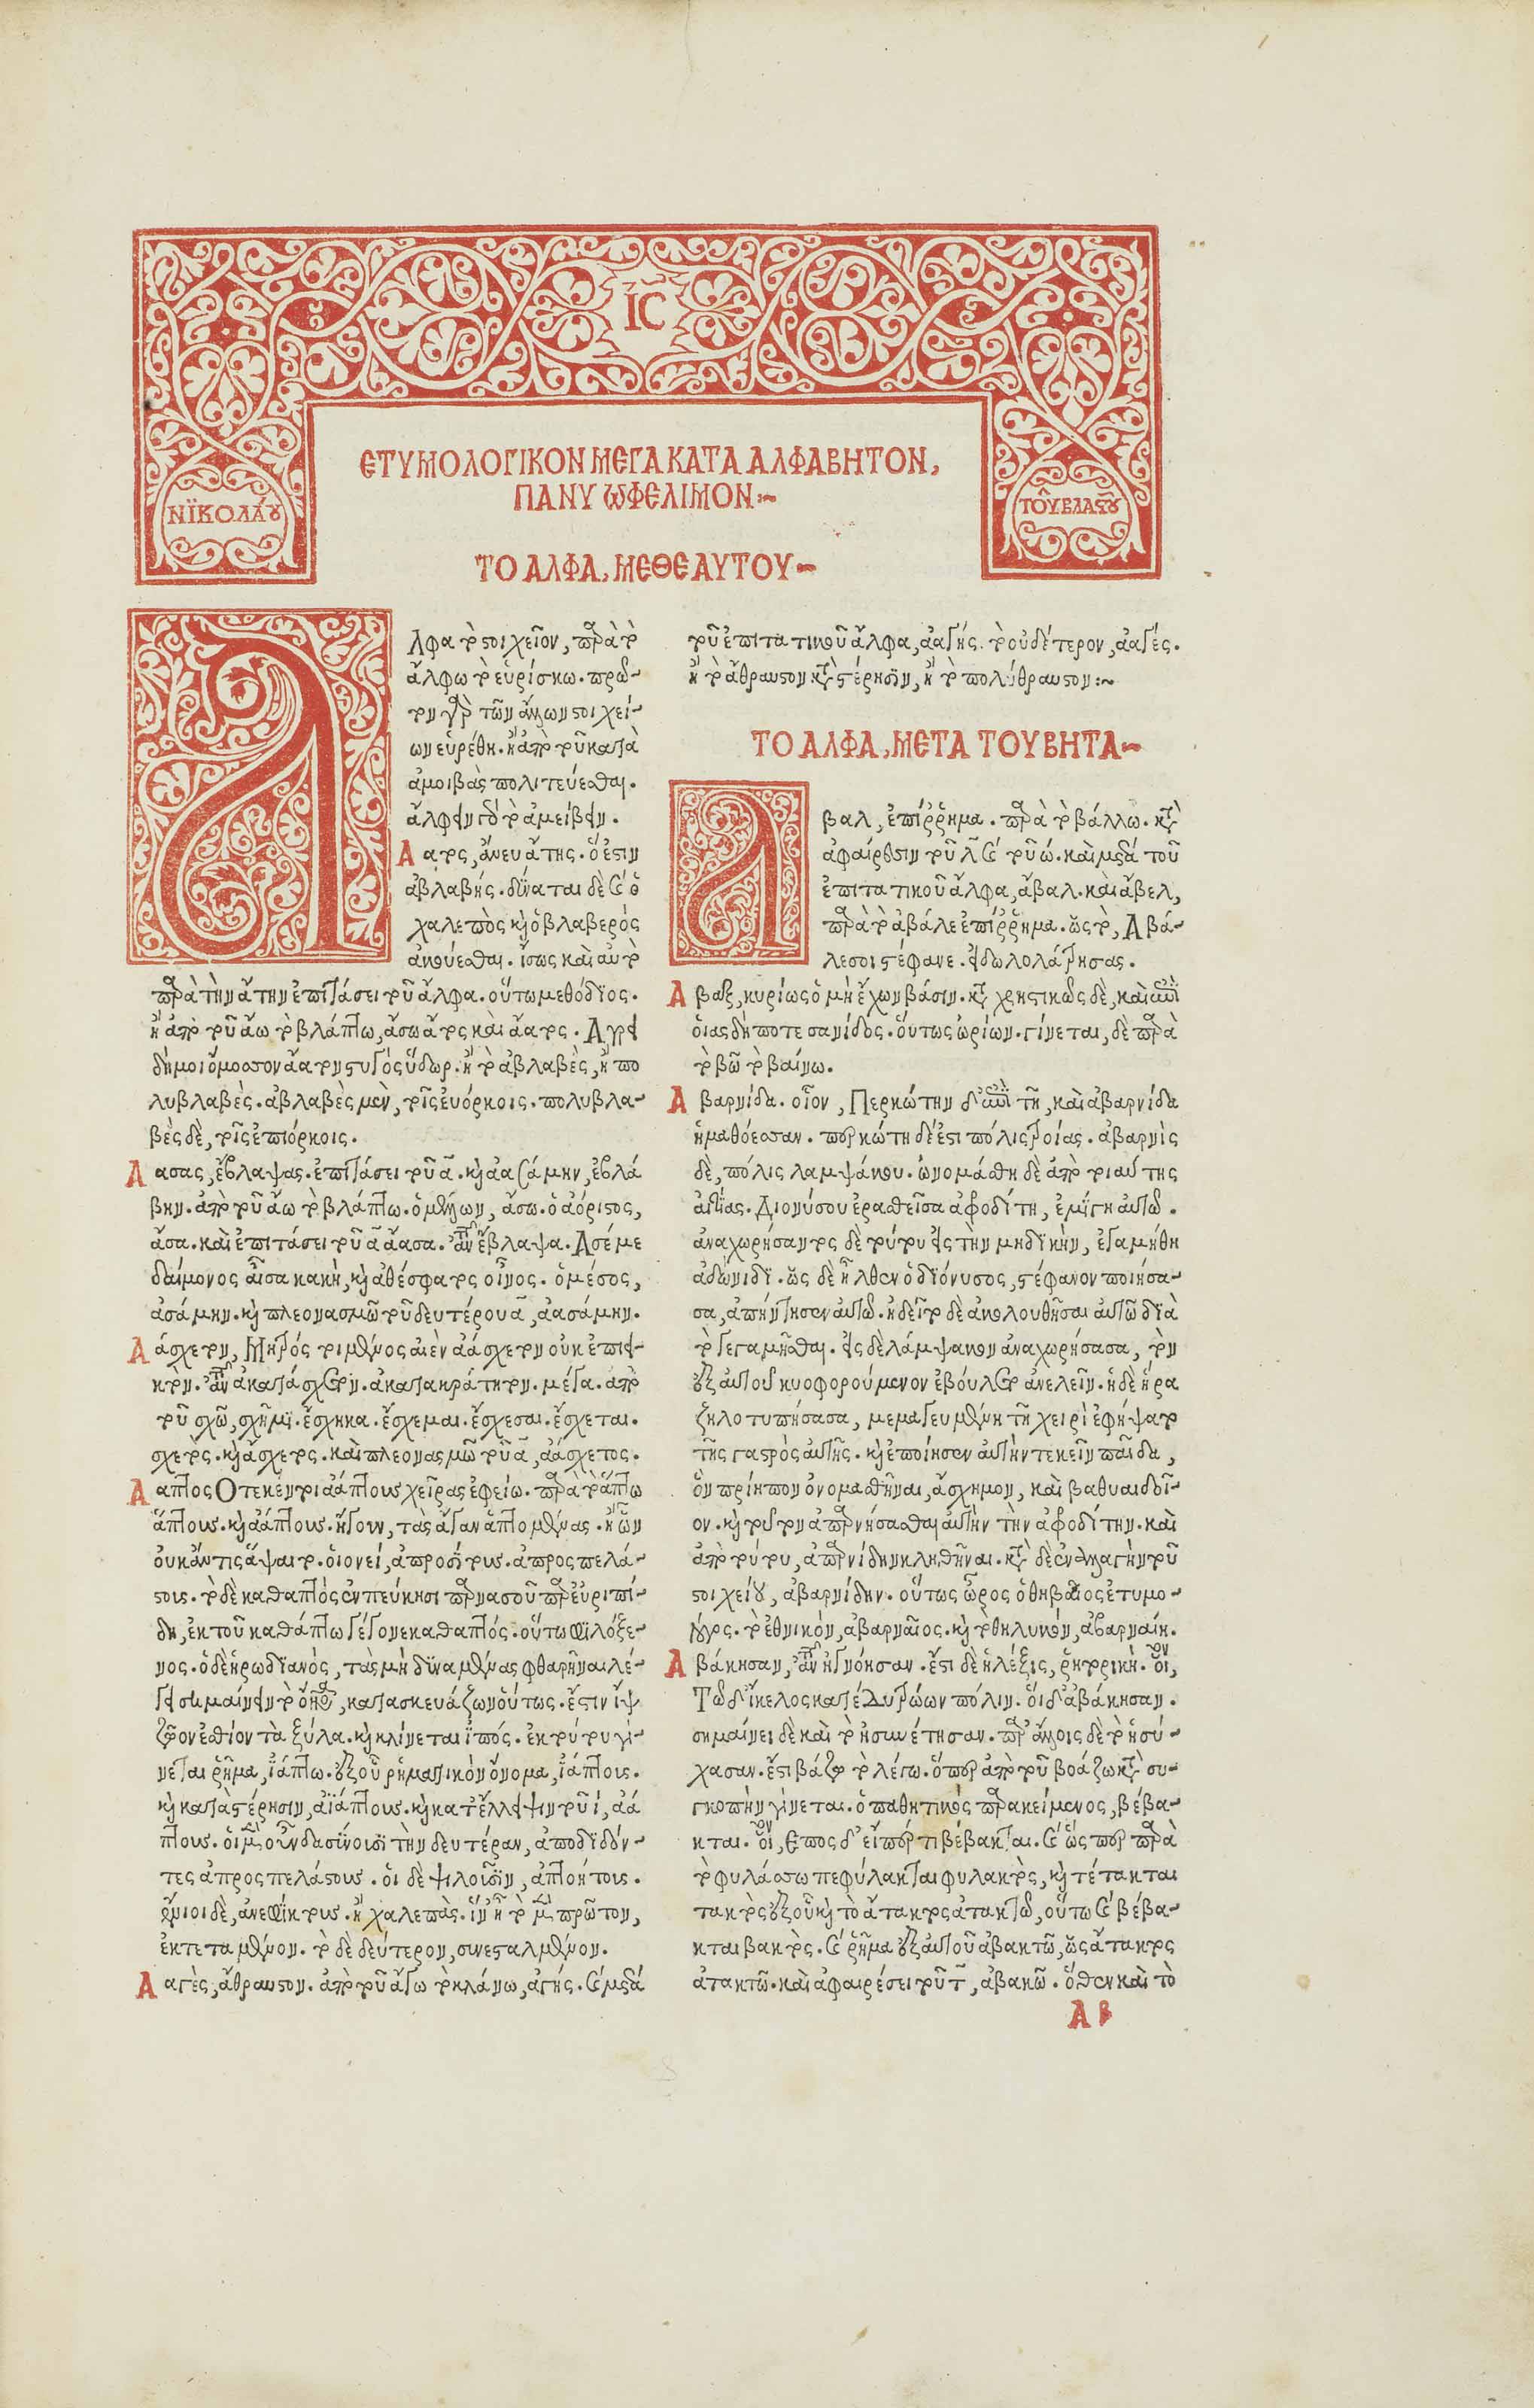 ΙC
ΝΪΚΟΛΆΟΥ
ΤΟΥ͂ ΒΛΑΣΤΟΥ͂
ΕΤΥΜΟΛΟΓΙΚΟΝ ΜΕΓΑ ΚΑΤΑ ΑΛΦΑΒΗΤΟΝ,
ΠΑΝΥ ΩΦΕΛΙΜΟΝ:~
ΤΟ ΑΛΦΑ, ΜΕΘ ΕΑΥΤΟΥ~
Αλφα τὸ στοιχεῖον, παρὰ τὸ
ἄλφω τὸ εὑρίσκω. πρῶ-
τον γὰρ τῶν ἄλλων στοιχεί-
ων εὑρέθη. ἢ ἀπὸ τοῦ κατὰ
ἀμοιβὰς πολιτεύεσθαι.
ἄλφειν γὰρ τὸ ἀμείβειν.
Ἄατος, ἄνευ ἄτης. ὅ ἐστιν
ἀβλαβής. δύναται δὲ καὶ ὁ
χαλεπὸς καὶ ὁ βλαβερὸς
ἀκούεσθαι. ἴσως καὶ αὐτὸ
παρὰ τὴν ἄτην ἐπιτάσει τοῦ ἄλφα. οὕτω μεθόδϊος.
ἢ ἀπὸ τοῦ ἄω τὸ βλάπτω, ἄσω ἆτος καὶ ἄατος. Αγρει
δή μοι ὄμοσσον ἀάατον στυγὸς ὕδωρ. ἢ τὸ ἀβλαβὲς, ἢ πο
λυβλαβὲς. ἀβλαβὲς μὲν, τοῖς εὐόρκοις. πολυβλα-
βὲς δὲ, τοῖς ἐπιόρκοις.
Αασας, ἔβλαψας. ἐπιτάσει τοῦ α. καὶ ἀασάμην, ἐβλά
βην. ἀπὸ τοῦ ἄω τὸ βλάπτω. ὁ μέλλων, ἄσω. ὁ ἀόριστος,
ἆσα. καὶ ἐπιτάσει τοῦ α ἄασα. ἀντὶ τοῦ ἔβλαψα. Ασέ με
δαίμονος αἶσα κακὴ, καὶ ἀθέσφατος οἶνος. ὁ μέσος,
ἀσάμην. καὶ πλεονασμῶ τοῦ δευτέρου α, ἀασάμην.
Αάσχετον, Μητρός τοι μένος αἰὲν ἀάσχετον οὐκ ἐπιει-
κτόν. ἀντὶ τοῦ ἀκατάσχετον. ἀκατακράτητον. μέγα. ἀπὸ
τοῦ σχῶ, σχῆμι. ἔσχηκα. ἔσχεμαι. ἔσχεσαι. ἔσχεται.
σχετὸς. καὶ ἄσχετος. καὶ πλεονασμῶ τοῦ α, ἀάσχετος.
Ααπτος Οτε κέν τοι ἀάπτους χεῖρας ἐφείω. παρὰ τὸ ἅπτω
ἅπτους. καὶ ἀάπτους. ἤγουν, τὰς ἄγαν ἁπτομένας. ἢ ὧν
οὐκ ἄν τις ἅψαιτο. οἱονεί, ἀπροσίτους. ἀπροςπελά-
στους. τὸ δὲ καθαπτὸς ἐν πεύκησι παρνασοῦ παρ' εὐριπί-
δη, ἐκ τοῦ καθάπτω γέγονε καθαπτός. οὕτω φιλόξε-
νος. ὁ δὲ ἡρωδϊανὸς, τὰς μὴ δϋναμένας φθαρῆναι λέ-
γει σημαίνειν
ζῶον ἐσθίον τὰ ξύλα. καὶ κλίνεται ἴπός. ἐκ τούτου γί-
νεται ῥῆμα, ἰάπτω. ἐξ οὗ ῥηματικὸν ὄνομα, ἴαπτους.
καὶ κατὰ στέρησιν, ἀϊάπτους. καὶ κατ' ἔλλειψιν τοῦ ι, ἀά
πτους. οἱ μὲν οὖν δασύνουσι τὴν δευτέραν, ἀποδϊδόν-
τες ἀπροςπελάστους. οἱ δὲ ψιλοῦσιν, ἀπτοήτους.
ἔνιοι δὲ, ἀνεφίκτους. ἢ χαλεπὰς. ἵν' ἦ τὸ μὲν πρῶτον,
ἐκτεταμένον. τὸ δὲ δεύτερον, συνεσταλμένον.
Ααγὲς, ἄθραυστον. ἀπὸ τοῦ ἄγω τὸ κλάνω, ἀγής. καὶ μετὰ
τοῦ ἐπιτατικοῦ ἄλφα, ἀαγής. τὸ οὐδέτερον, ἀαγές.
ἢ τὸ ἄθραυστον κατὰ στέρησιν, ἢ τὸ πολύθραυστον:~
ΤΟ ΑΛΦΑ, ΜΕΤΑ ΤΟΥ ΒΗΤΑ~
Αβαλ, ἐπίῤῥημα. παρὰ τὸ βάλλω. κατὰ
ἀφαίρεσιν τοῦ λ καὶ τοῦ ω. καὶ μετὰ τοῦ
ἐπιτατικοῦ ἄλφα, ἄβαλ. καὶ ἄβελ,
παρὰ τὸ ἀβάλε ἐπίῤῥημα. ὥς τὸ, Αβά-
λε σοι στέφανε. εἰδωλολάτρησας.
Αβαξ, κυρίως ὁ μὴ ἔχων βάσιν. καταχρηστικῶς δὲ, καὶ ἐπὶ
οἵας δήποτε σανίδος. οὕτως ὠρίων. γίνεται, δὲ παρὰ
τὸ βῶ τὸ βαίνω.
Αβαρνίδα. οἷον, Περκώτην δ' ἐπὶ τῆ, καὶ ἀβαρνίδα
ἠμαθόεσσαν. περκώτη δέ ἐστι πόλις τροίας. ἀβαρνὶς
δὲ, πόλις λαμψάκου. ὠνομάσθη δὲ ἀπὸ τοιαύτης
αἰτίας. Διονύσου ἐρασθεῖσα ἀφροδίτη, ἐμίγη αὐτῶ.
ἀναχωρήσαντος δὲ τούτου εἰς τὴν ϊνδϊκὴν, ἐγαμήθη
ἀδώνιδϊ. ὡς δὲ ἦλθεν ὁ δϊόνυσος, στέφανον ποιήσα-
σα, ἀπήντησεν αὐτῶ. ἠδεῖτο δὲ ἀκολουθῆσαι αὐτῶ δϊὰ
τὸ γεγαμῆσθαι. εἰς δὲ λάμψακον ἀναχωρήσασα, τὸν
ἐξ αὐτοῦ κυοφορούμενον ἐβούλετο ἀνελεῖν. ἡ δὲ ἥρα
ζηλοτυπήσασα, μεμαγευμένη τῆ χειρὶ ἐφήψατο
τῆς γαστρὸς αὐτῆς. καὶ ἐποίησεν αὐτὴν τεκεῖν παῖδα,
ὃν πρίηπον ὀνομασθῆναι, ἄσχημον, καὶ βαθυαιδοῖ-
ον. καὶ τοῦτον ἀπαρνήσασθαι αὐτὴν τὴν ἀφροδίτην. καὶ
ἀπὸ τούτου, ἀπαρνίδην κληθῆναι. κατὰ δὲ ἐναλλαγὴν τοῦ
στοιχείου, ἀβαρνίδην. οὕτως ὧρος ὁ θηβαῖος ἐτυμο-
λόγος. τὸ ἐθνικὸν, ἀβαρναῖος. καὶ τὸ θηλυκὸν, ἀβαρναίη.
Αβάκησαν, ἀντὶ τοῦ ἠγνόησαν. ἔστι δὲ ἡ λέξις, ῥητορική. οἷον,
Τῶ δ' ἴκελος κατέδυ τρώων πόλιν. οἱ δ' ἀβάκησαν.
σημαίνει δὲ καὶ τὸ ἠσυνέτησαν. παρ' ἄλλοις δὲ τὸ ἡσύ-
χασαν. ἔστι βάζω τὸ λέγω. ὅπερ ἀπὸ τοῦ βοάζω κατὰ συ-
γκοπὴν γίνεται. ὁ παθητικὸς παρακείμενος, βέβα-
κται. οἷον, Επος δ' εἴπέρ τι βέβακται. καὶ ὥς περ παρὰ
τὸ φυλάσσω πεφύλακται φυλακτὸς, καὶ τέτακται
τακτὸς ἐξ οὗ καὶ τὸ ἄτακτος ἀτακτῶ, οὕτω καὶ βέβα-
κται βακτὸς. καὶ ῥῆμα ἐξ αὐτοῦ ἀβακτῶ, ὡς ἄτακτος
ἀτακτῶ. καὶ ἀφαιρέσει τοῦ τ, ἀβακῶ. ὅθεν καὶ τὸ
Α β